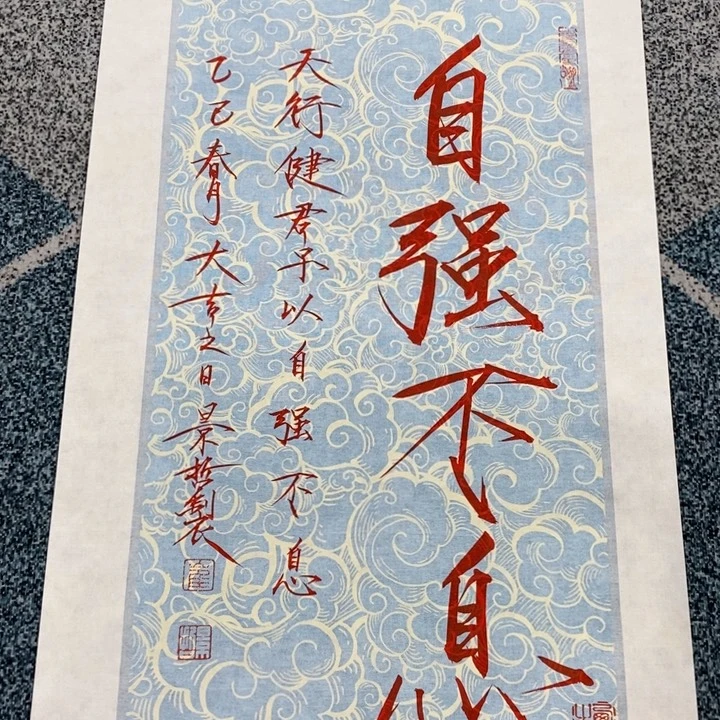 自强不息
天行健君子以自强不息
乙巳春月大吉之日景哲製